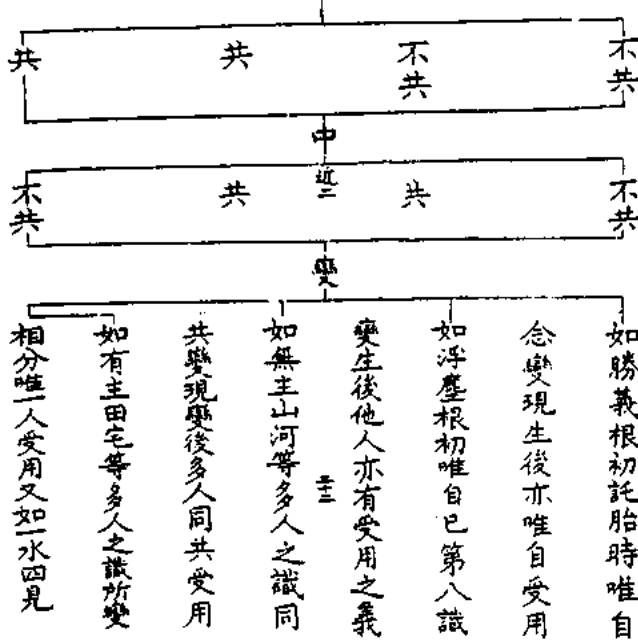 不共
不共
共
共
中
不共
共
近二
共
不共
變
如勝義根初託胎時唯自
念變現生後亦唯自受用
如浮塵根初唯自已第八識
變生後他人亦有受用之義
如無主山河等多人之識同
共變現變後多人同共受用
如有主田宅等多人之識所變
相分唯一人受用又如一水四見